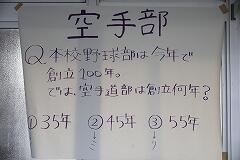 空手部
Q.本校野球部は今年で
創立100年。
では、空手道部は創立何年?
①35年 ②45年 ③55年